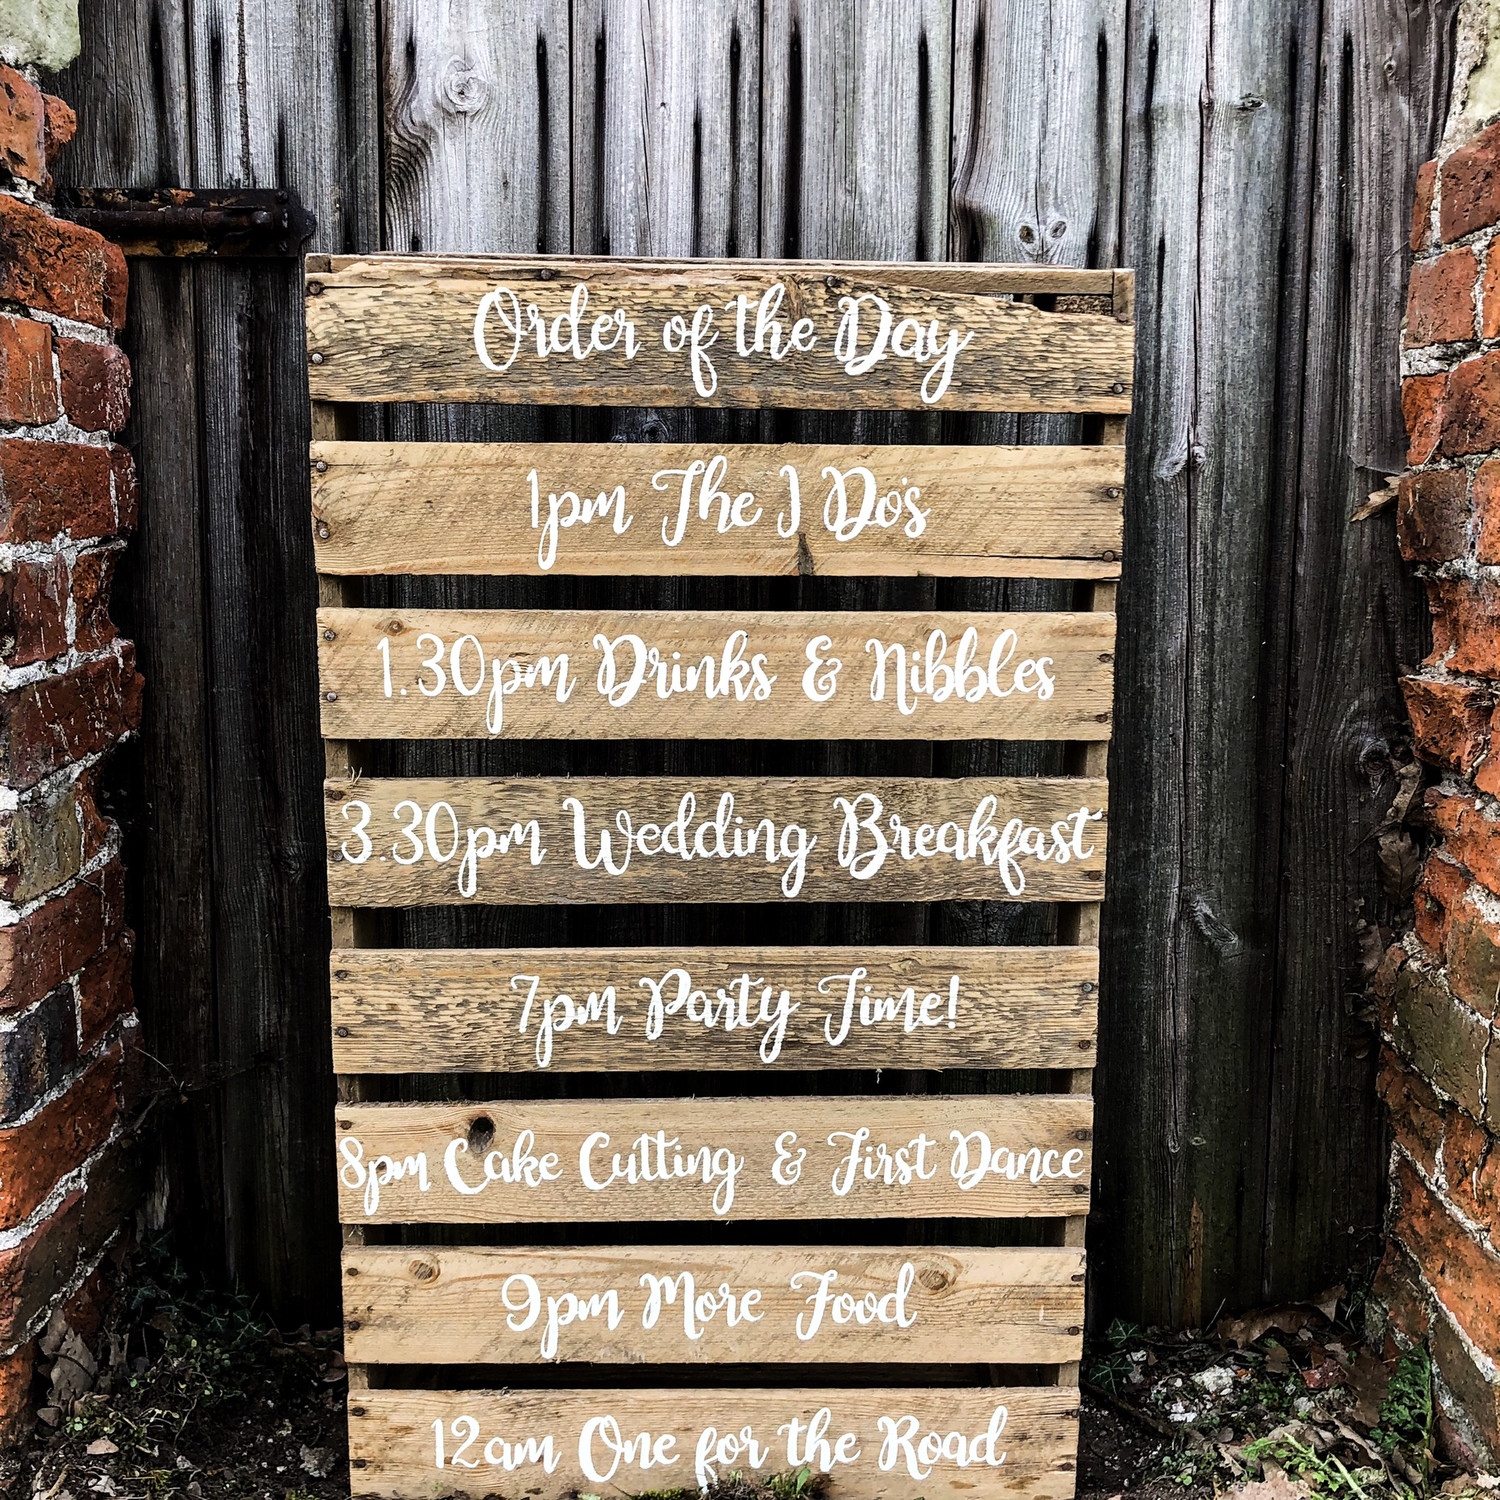 Order of the Day
1pm The I Do's
1.30pm Drinks & Nibbles
3.30pm Wedding Breakfast
7pm Party Time!
8pm Cake Cutting & First Dance
9pm More Food
12am One for the Road